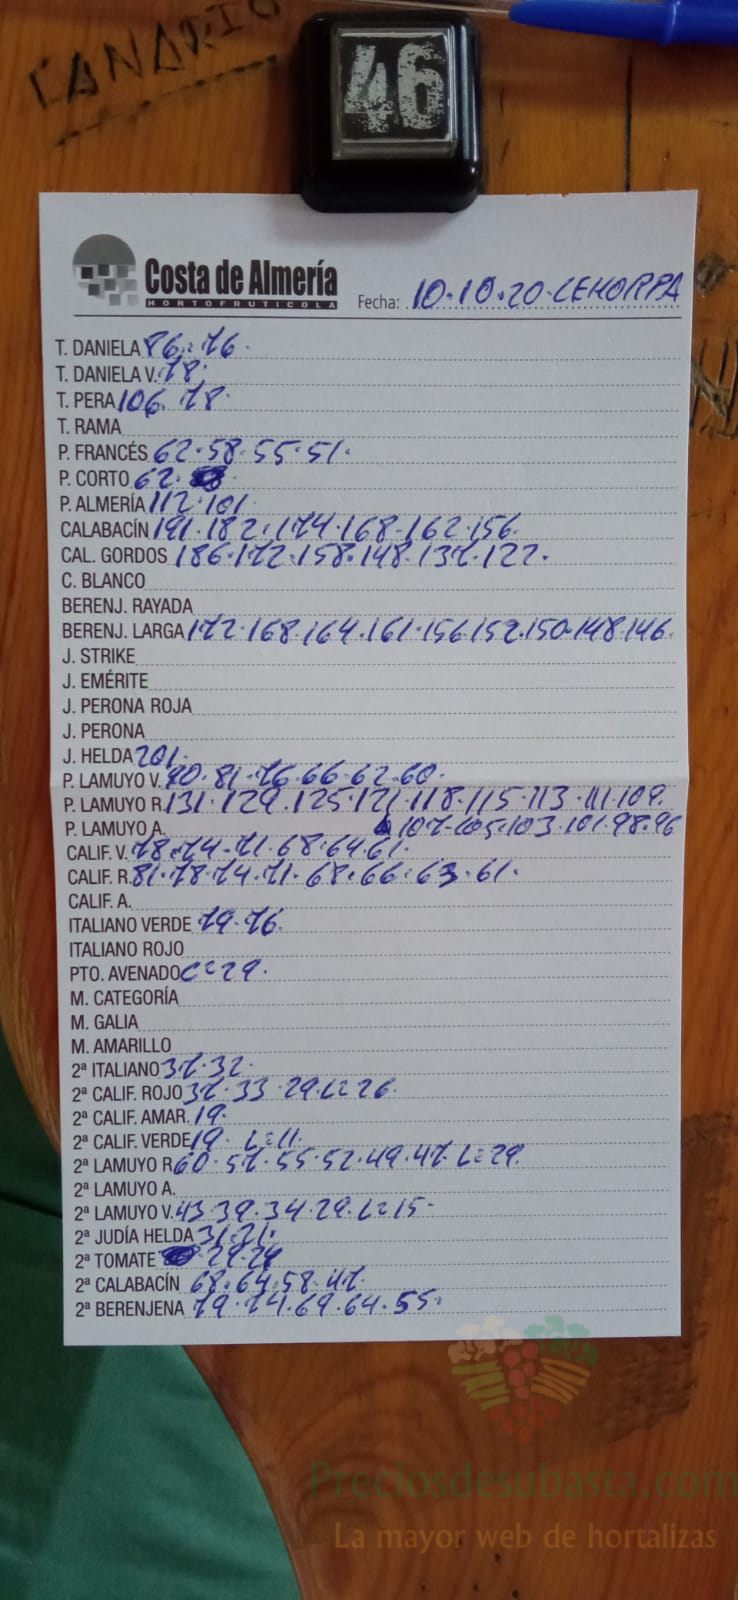 CANARIO
46
Costa de Almería
HORTOFRUTICOLA
Fecha: 10.10.20.CEHORPA
T. DANIELA 86.76.
T. DANIELA V. 78.
T. PERA 106. 78.
T. RAMA
P. FRANCÉS 62.58.55.51.
P. CORTO 62.
P. ALMERÍA 112.101
CALABACÍN 191.182.174.168.162.156.
CAL. GORDOS 186.172.158.148.137.122.
C. BLANCO
BERENJ. RAYADA
BERENJ. LARGA 172.168.164.161.156.152.150.148.146.
J. STRIKE
J. EMÉRITE
J. PERONA ROJA
J. PERONA
J. HELDA 201.
P. LAMUYO V. 90.81.76.66.62.60.
P. LAMUYO R. 131.129.125.121.118.115.113.111.109.
P. LAMUYO A. 107.105.103.101.98.96
CALIF. V. 78.74.71.68.64.61.
CALIF. R. 81.78.74.71.68.66.63.61.
CALIF. A.
ITALIANO VERDE 79.76.
ITALIANO ROJO
PTO. AVENADO C=29.
M. CATEGORÍA
M. GALIA
M. AMARILLO
2ª ITALIANO 37.32.
2ª CALIF. ROJO 37.33.29.L=26.
2ª CALIF. AMAR. 19.
2ª CALIF. VERDE 19. L=11.
2ª LAMUYO R 60.57.55.52.49.47.L=29.
2ª LAMUYO A.
2ª LAMUYO V. 43.39.34.29.L=15.
2ª JUDÍA HELDA 31.21.
2ª TOMATE
2ª CALABACÍN 68.64.58.47.
2ª BERENJENA 79.74.69.64.55.
Preciosdesubasta.com
La mayor web de hortalizas